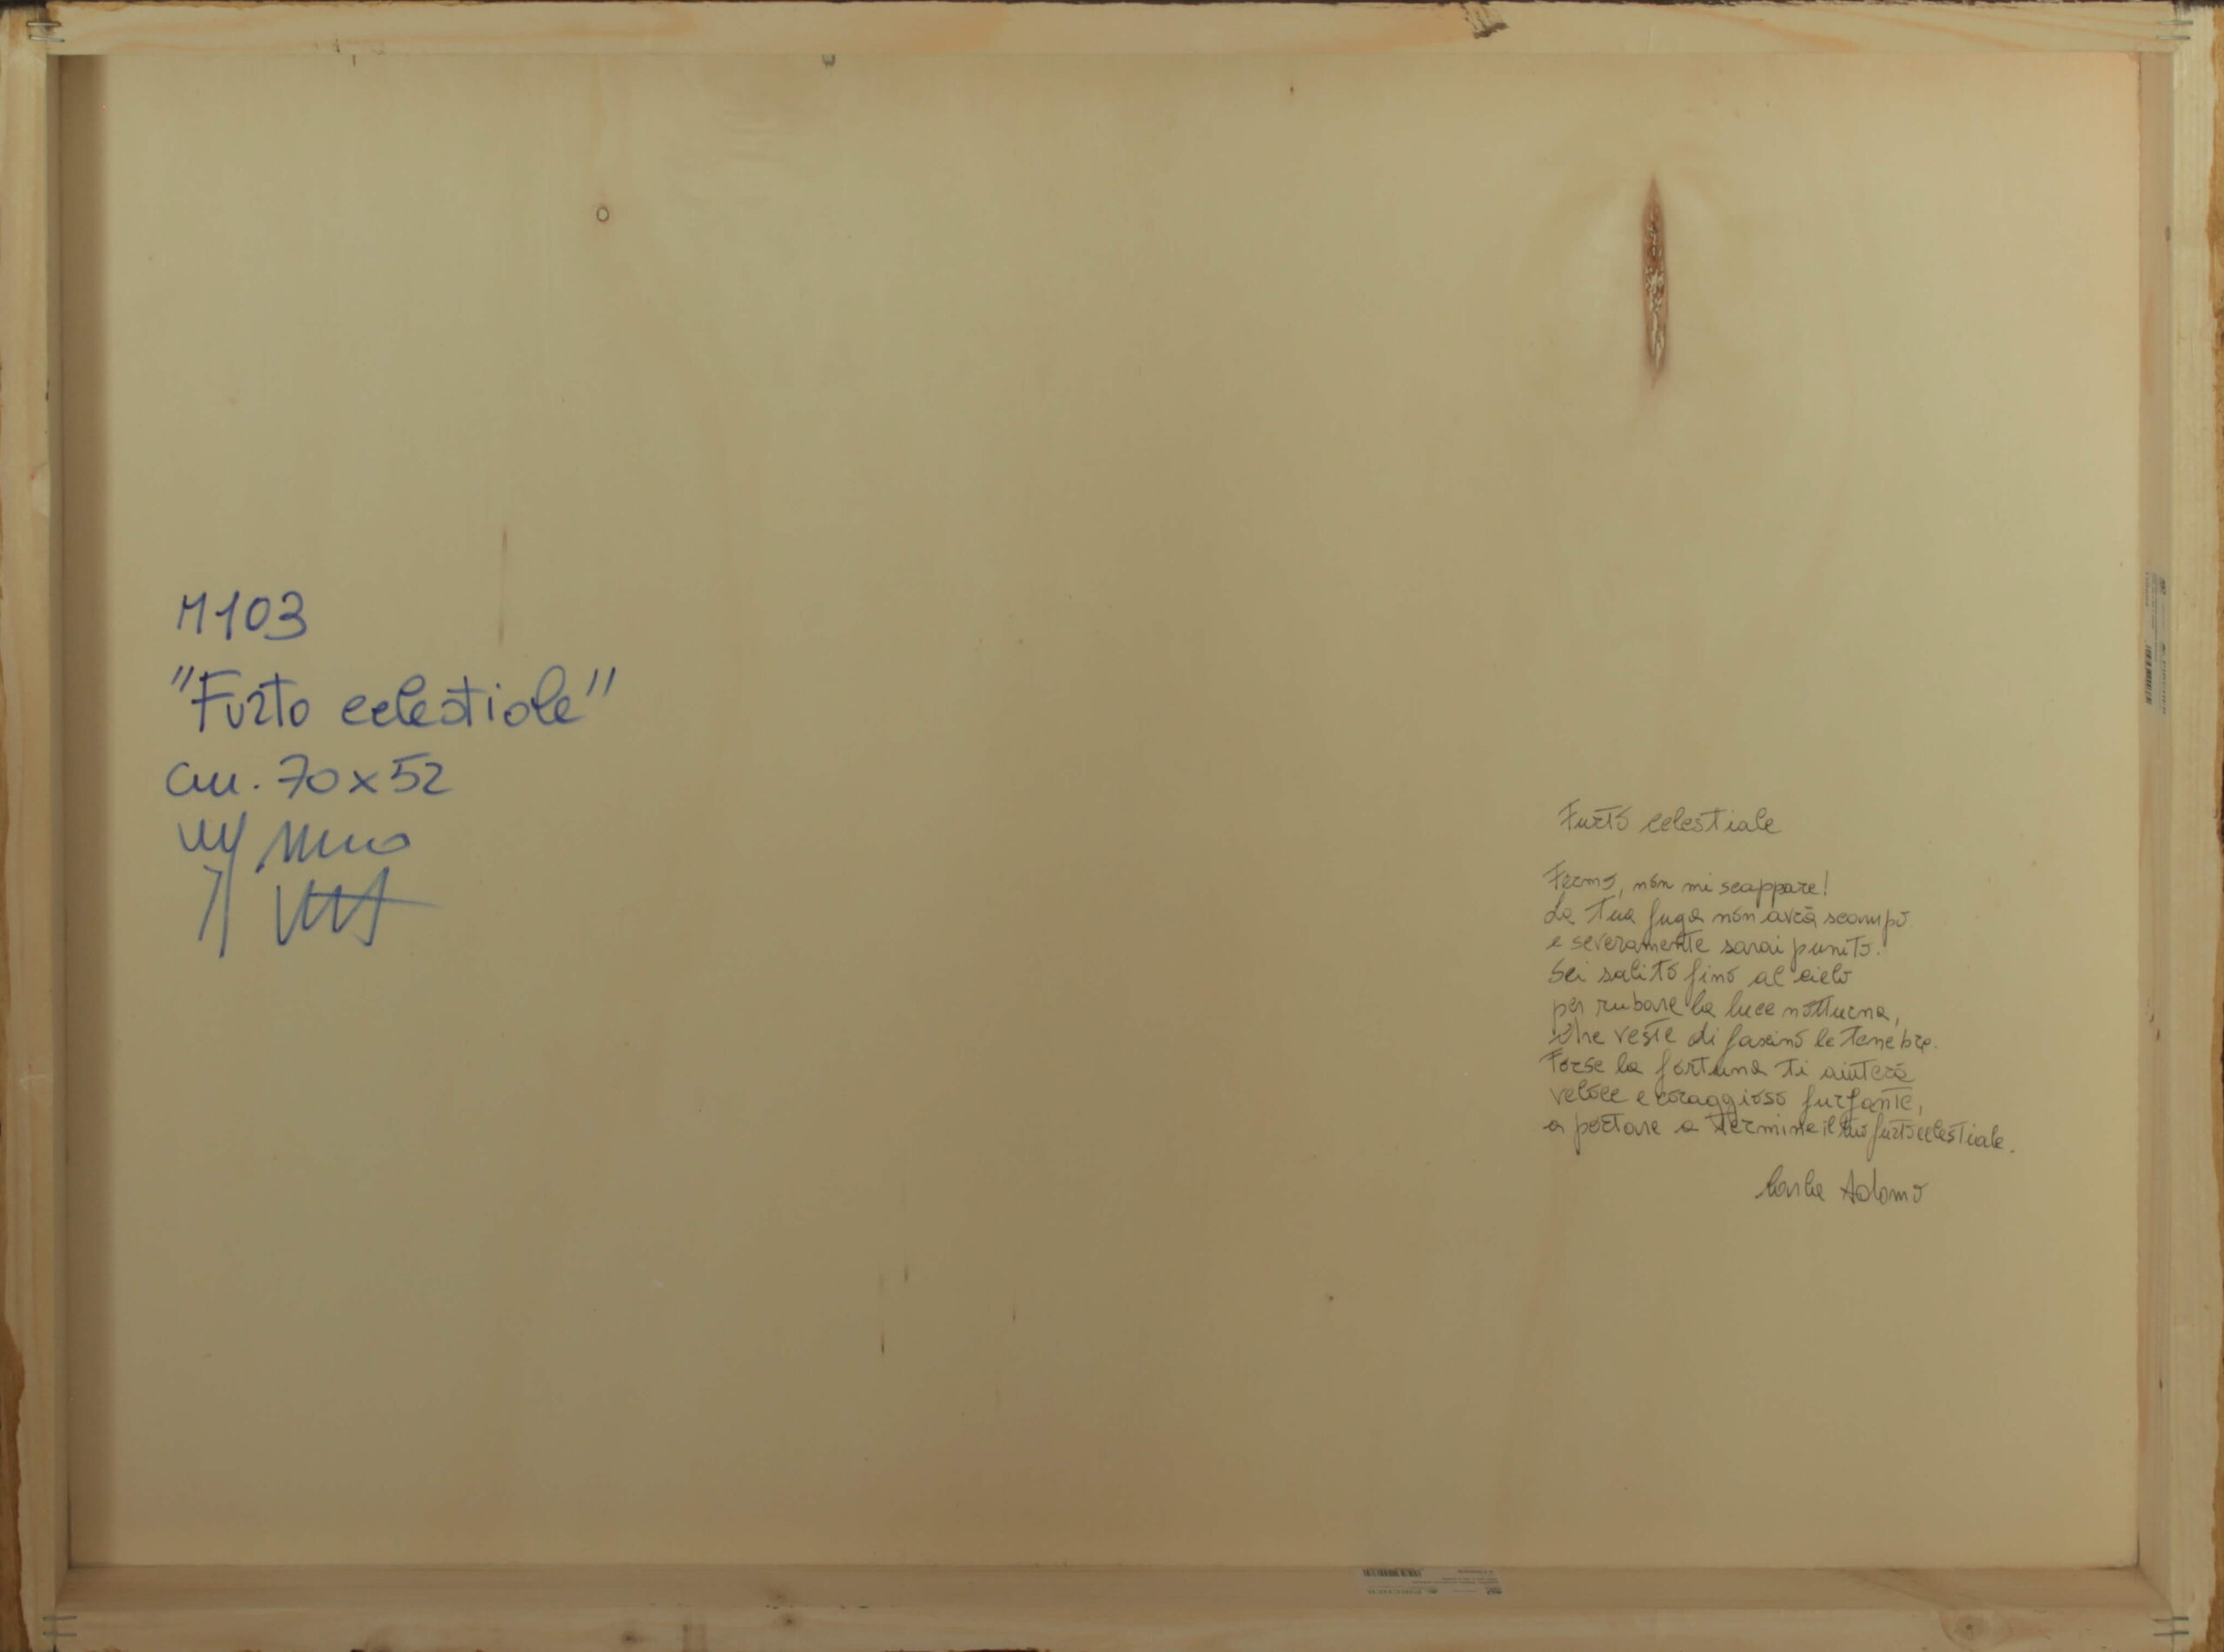 M103
"Furto celestiale"
cm. 70x52
Furto celestiale
Fermo, non mi scappare!
La tua fuga non avrà scampo
e severamente sarai punito.
Sei salito fino al cielo
per rubare la luce notturna,
che veste di fascino le tenebre.
Forse la fortuna ti aiuterà
veloce e coraggioso furfante,
a portare a termine il tuo furto celestiale.
Carla Adamo